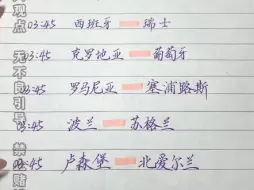 03:45 西班牙 瑞士
03:45 克罗地亚 葡萄牙
03:45 罗马尼亚 塞浦路斯
03:45 波兰 苏格兰
03:45 卢森堡 北爱尔兰
观点
无不良引导
禁